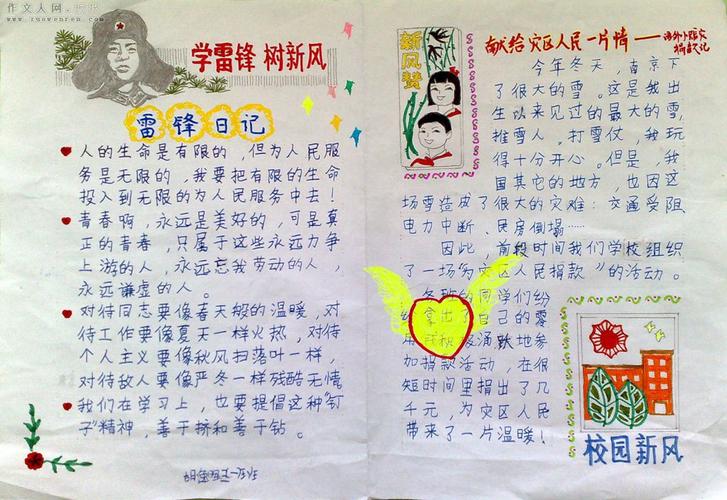 作文人网
www.zuowenren.com
学雷锋 树新风
雷锋日记
人的生命是有限的,但为人民服
务是无限的,我要把有限的生命
投入到无限的为人民服务中去!
青春啊,永远是美好的,可是真
正的青春,只属于这些永远力争
上游的人,永远忘我劳动的人,
永远谦虚的人。
对待同志要像春天般的温暖,对
待工作要像夏天一样火热,对待
个人主义要像秋风扫落叶一样,
对待敌人要像严冬一样残酷无情
我们在学习上,也要提倡这种“钉
子”精神,善于挤和善于钻。
新风赞
献给灾区人民一片情——
今年冬天,南京下
了很大的雪。这是我出
生以来见过的最大的雪,
推雪人。打雪仗,我玩
得十分开心。但是,我
国其它的地方,也因这
场雪造成了很大的灾难:交通受阻
电力中断、民房倒塌……
因此,前段时间我们学校组织
了一场“为灾区人民捐款”的活动。
各班的同学们纷
纷拿出了自己的零
用钱积极踊跃地参
加捐款活动,在很
短时间里捐出了几
千元,为灾区人民
带来了一片温暖!
校园新风